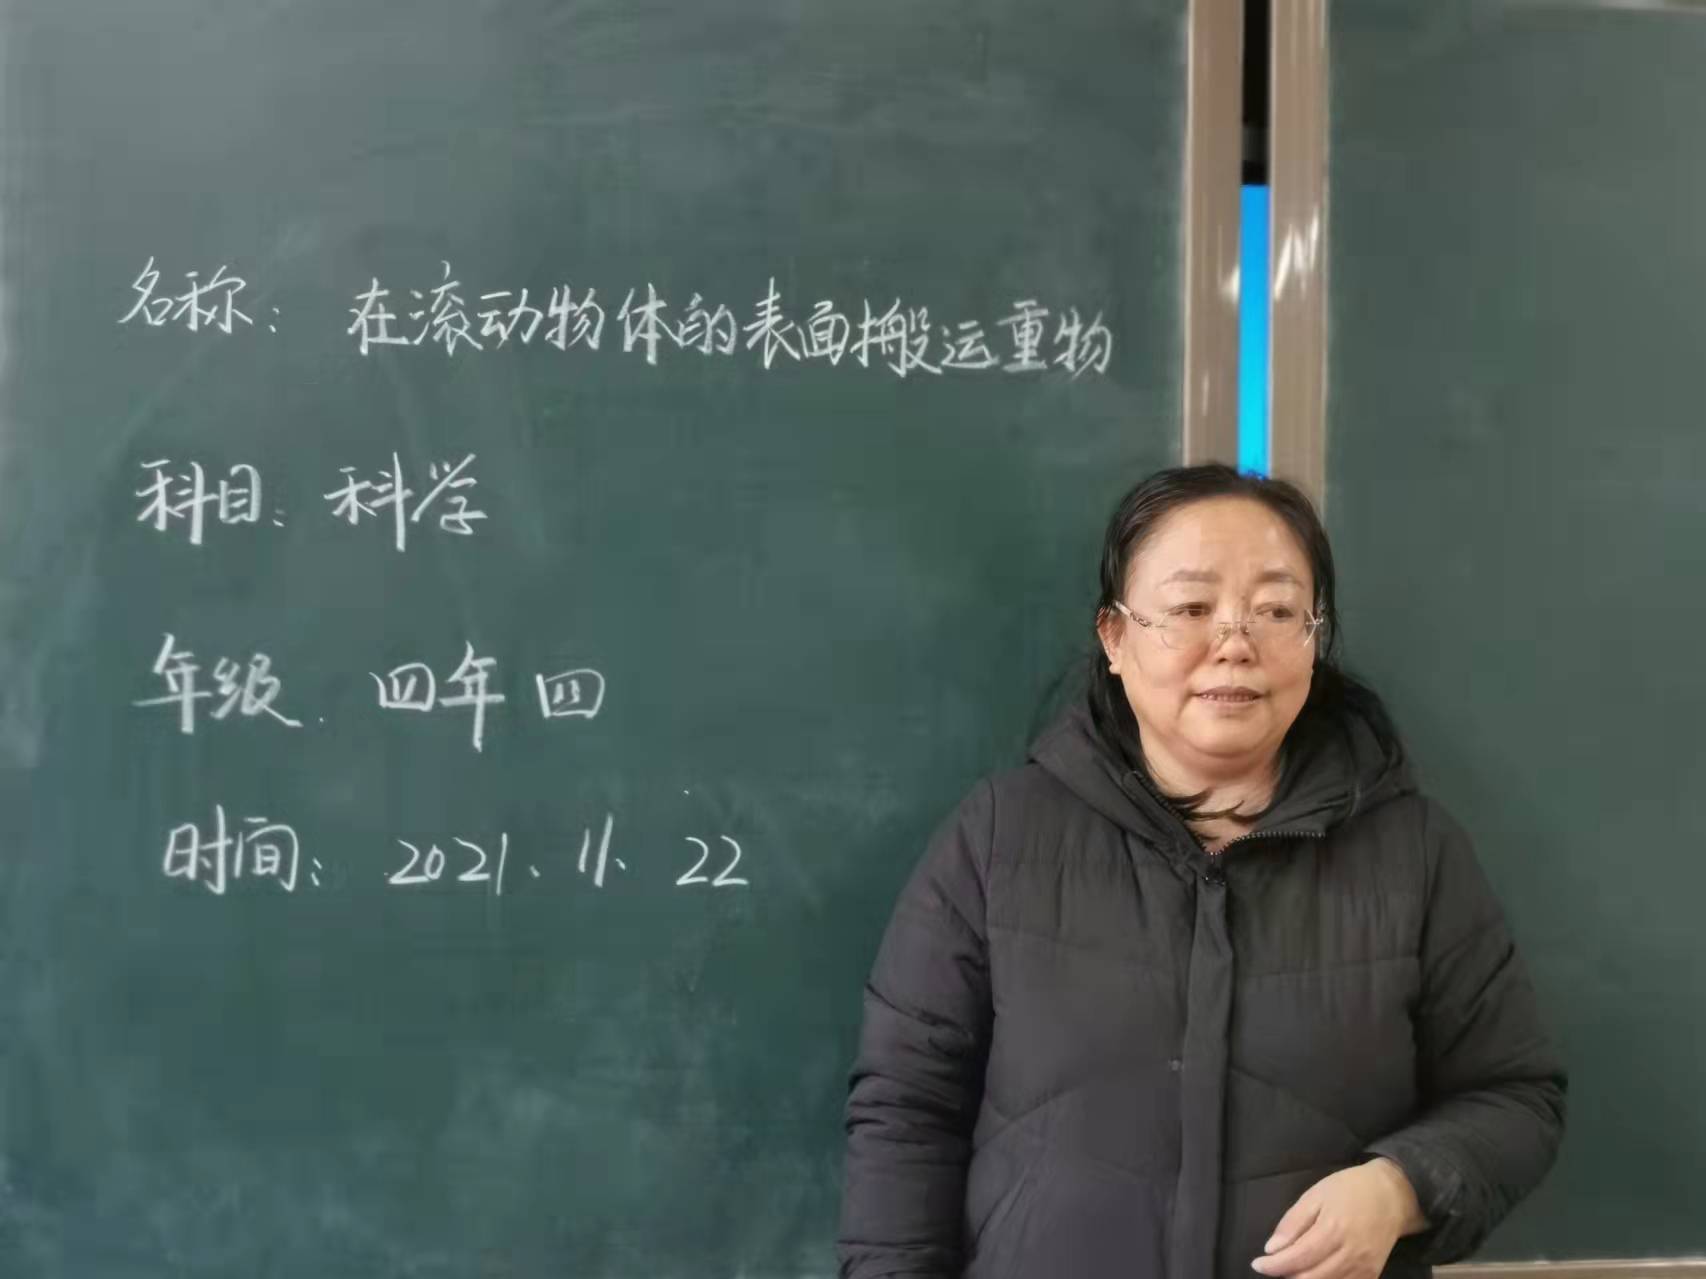 名称：在滚动物体的表面搬运重物
科目：科学
年级．四年四
时间：2021、11、22